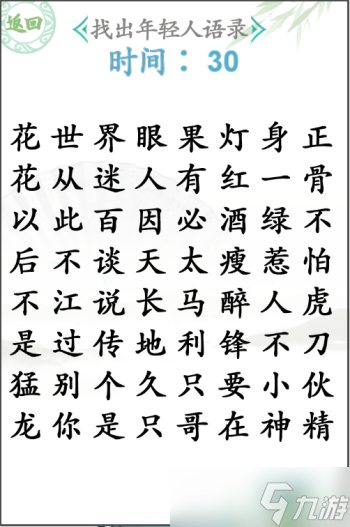 返回
找出年轻人语录
时间：30
花世界眼果灯身正
花从迷人有红一骨
以此百因必酒绿不
后不谈天太瘦惹怕
不江说长马醉人虎
是过传地利锋不刀
猛别个久只要小伙
龙你是只哥在神精
九游